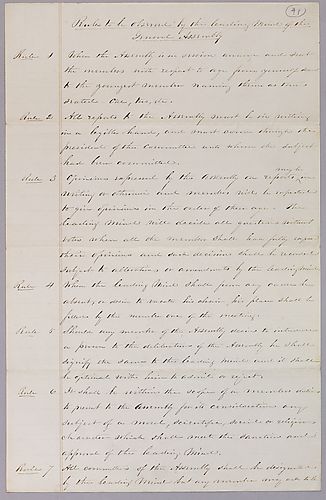 41
Rules to be observed by the Leading Mind of the
General Assembly
Rule 1 When the Assembly is in session arrange and seat
the members with respect to age from youngest
to the youngest member naming them as
seated. One, two, &c.
Rule 2 All reports to the Assembly must be in writing
in a legible hand, and must come through the
president of the Committee unto whom the subject
had been committed.
Rule 3 Opinions expressed by the Assembly on reports may be in
writing or otherwise and members will be requested
to give opinions in the order of their The
Leading Mind will decide all questions without
votes when all the members shall have fully
their opinions and such decisions shall be
subject to alterations or amendments by the leading mind
Rule 4 When the Leading Mind shall from any cause be
absent, or seem to vacate his chair, his place shall be
filled by the member one of the meeting.
Rule 5 Should any member of the Assembly desire to introduce
a person to the deliberations of the Assembly he shall
signify the same to the leading mind and it shall
be optional with him to admit or reject.
Rule 6 It shall be within the scope of a members duties
to present to the Assembly for its consideration any
subject of a moral, scientific, social or religious
character which shall meet the sanction and
approval of the Leading Mind.
Rule 7 All committees of the Assembly shall be designated
by the Leading Mind but any member may